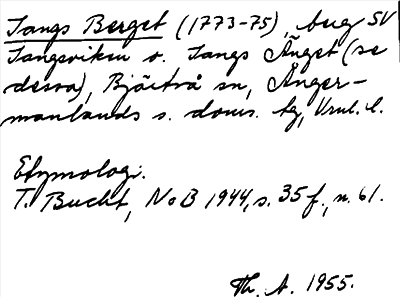 Tangs Berget (1773-75), berg SV
Tangsviken o. Tangs Änget (se
dessa), Bjärtrå sn, Ånger-
manlands s. doms. tg, Vrml. l.
Etymologi:
T. Bucht, NoB 1944, s. 35 f., n. 61.
Th. A. 1955.